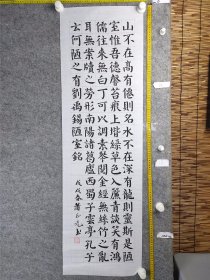 山不在高有僊則名水不在深有龍則靈斯是陋
室惟吾德馨苔痕上堦綠草色入簾青談笑有鴻
儒往來無白丁可以調素琴閱金經無絲竹之亂
耳無案牘之勞形南陽諸葛廬西蜀子雲亭孔子
云何陋之有劉禹錫陋室銘
戊戌春